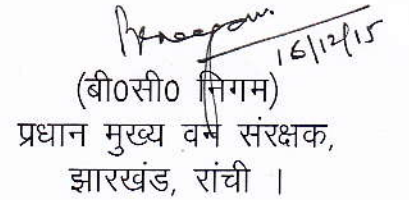 16/12/15
(बी0सी0 निगम)
प्रधान मुख्य वन संरक्षक,
झारखंड, रांची ।